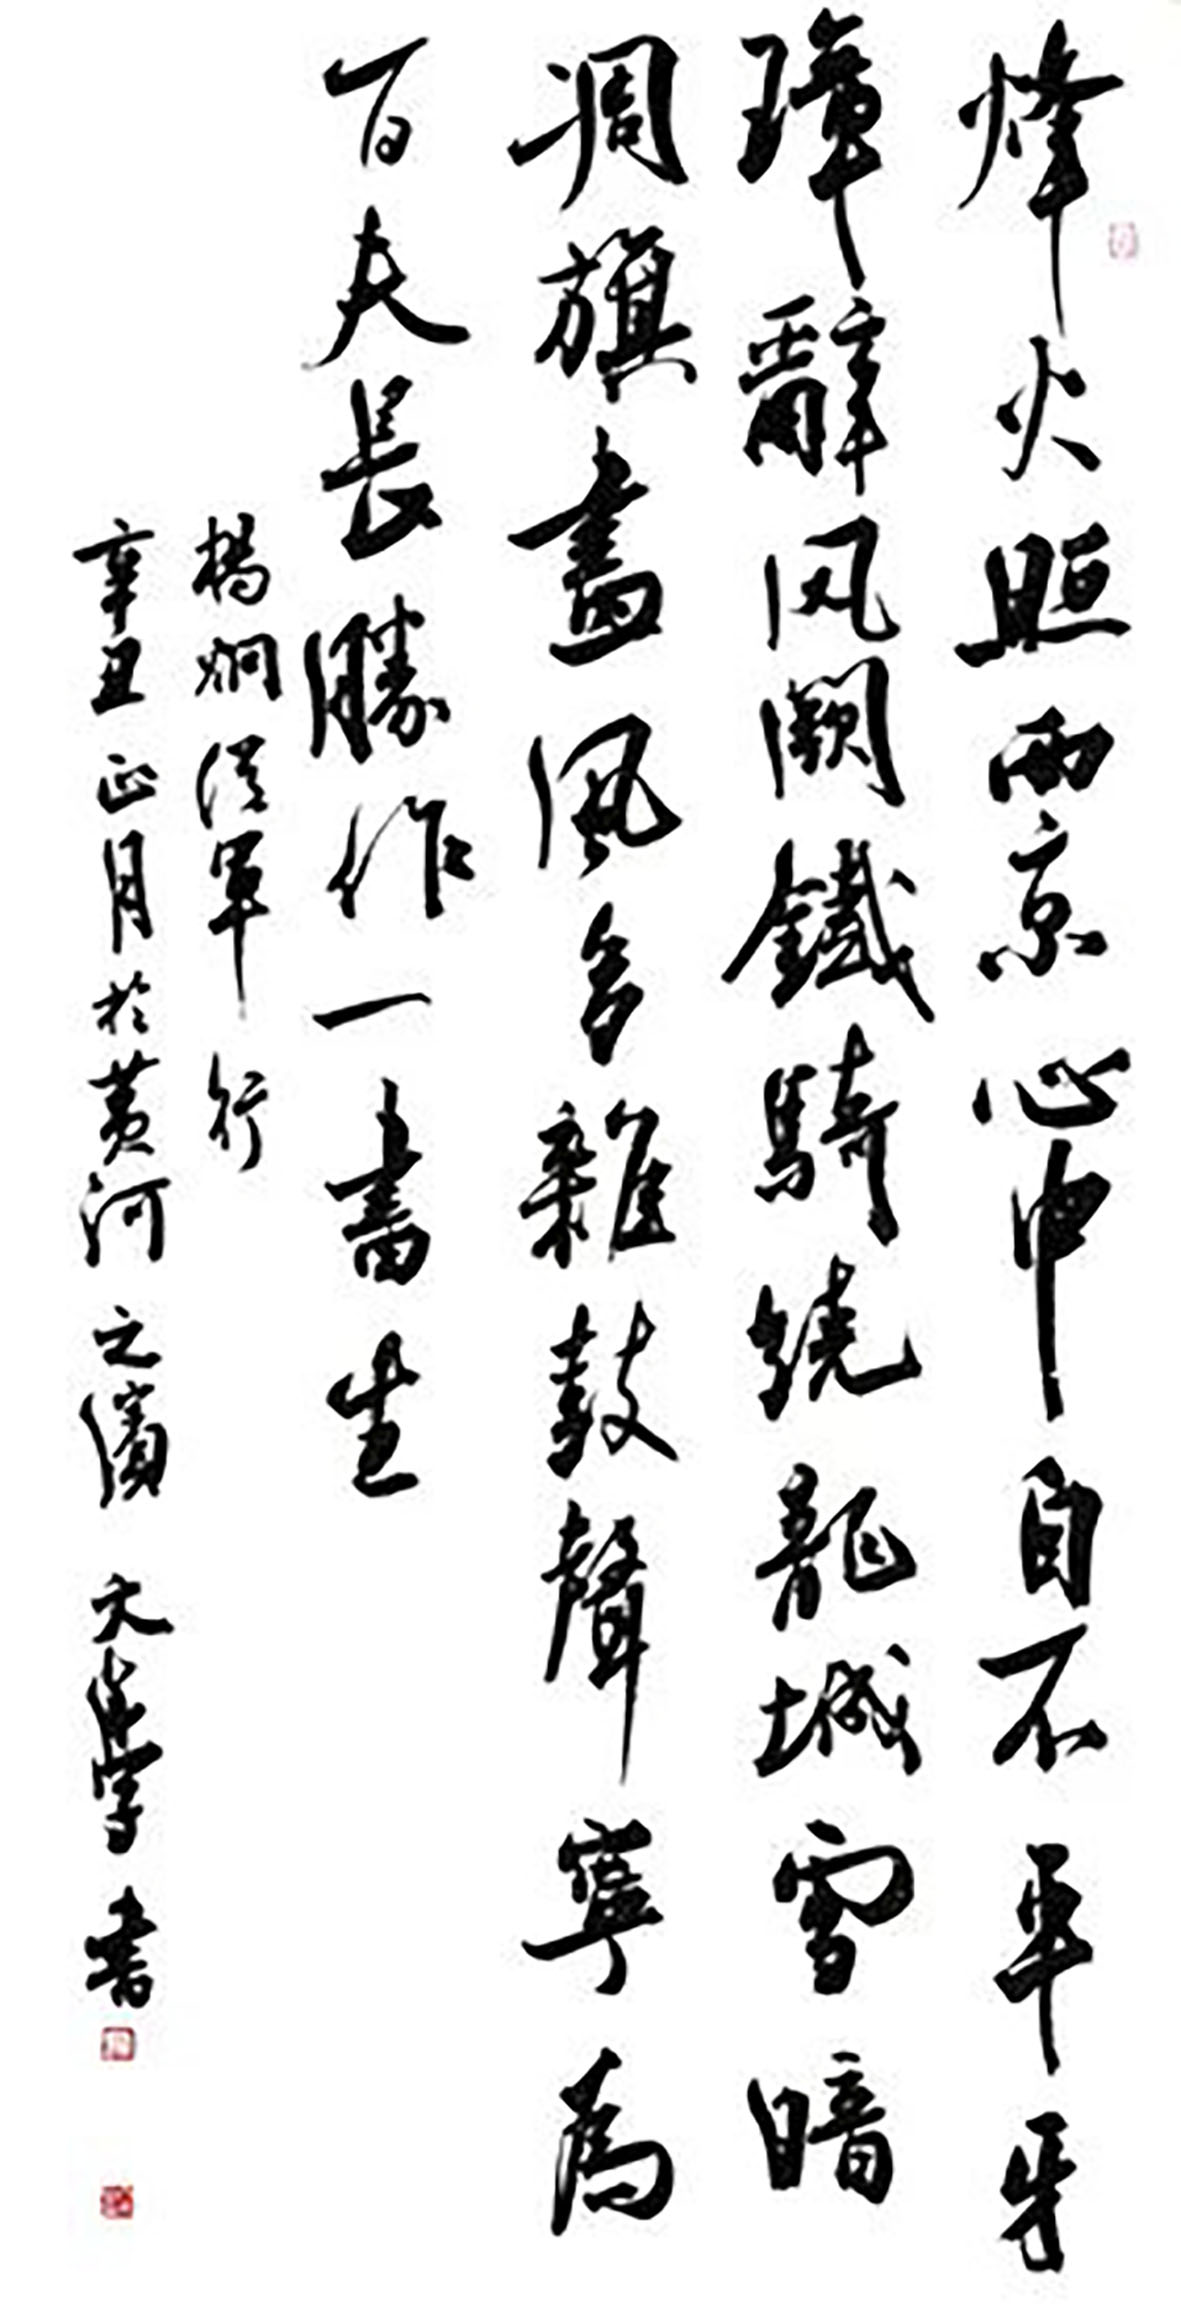 烽火照西京心中自不平牙
璋辭凤闕鐵騎繞龍城雪暗
凋旗畫風多雜鼓聲寧為
百夫長勝作一書生
楊炯從軍行
辛丑正月於黄河之濱 書